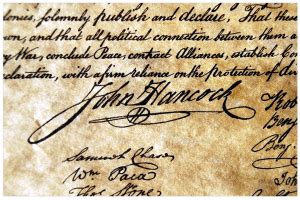 onies, solemnly publish and declare, That these
own, and that all political connection between them a
y War, conclude Peace, contract Alliances, establish Co
claration, with a firm reliance on the protection of
John Hancock
Ben
Benj.
Samuel Chase
Wm Paca
Thos Stone